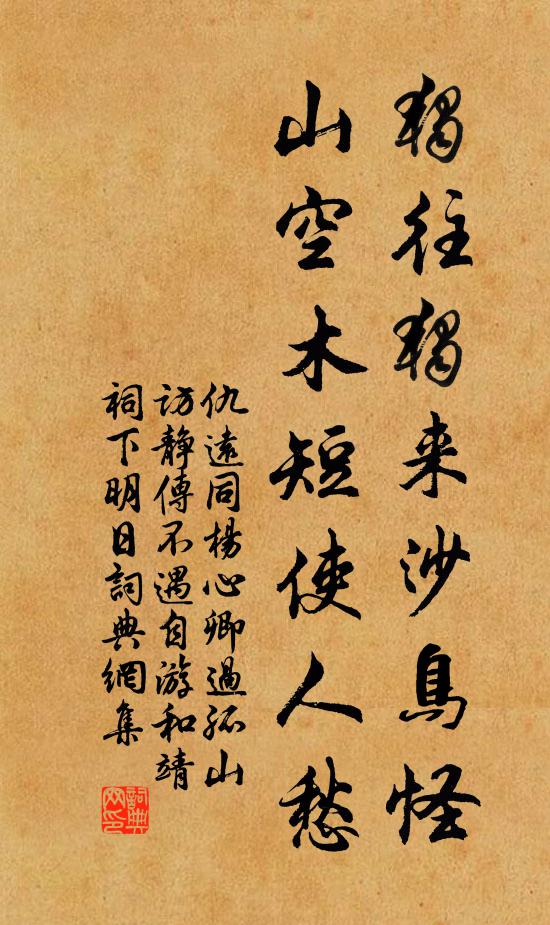 獨往獨来沙鳥怪
山空木短使人愁
仇遠同楊心卿過孤山
訪靜傳不遇自游和靖
祠下明日詞典網集
詞典
网印